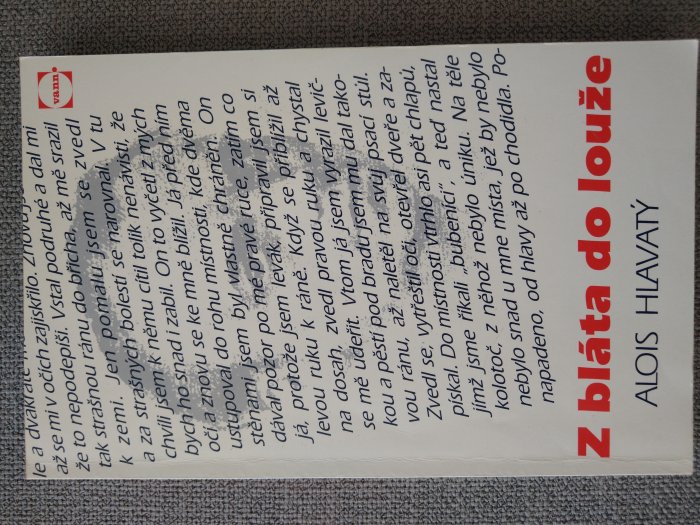 vann
le a dvakrát
až se mi v očích zajiskřilo. Znovu
že to nepodepíši. Vstal podruhé a dal mi
tak strašnou ránu do břicha, až mě srazil
k zemi. Jen pomalu jsem se zvedl
a za strašných bolestí se narovnal. V tu
chvíli jsem k němu cítil tolik nenávisti, že
bych ho snad i zabil. On to vyčetl z mých
očí. Znovu se ke mně blížil. Já před ním
ustupoval do rohu místnosti, kde dvěma
stěnami jsem byl vlastně chráněn. On
dával pozor po mé pravé ruce, zatím co
já, protože jsem levák, připravil jsem si
levou ruku k ráně. Když se přiblížil až
na dosah, zvedl pravou ruku a chystal
se mě udeřit. Vtom já jsem vyrazil levič-
kou a pěstí pod bradu jsem mu dal tako-
vou ránu, až naletěl na svůj psací stůl.
Zvedl se, vytřeštil oči, otevřel dveře a za-
pískal. Do místnosti vtrhlo asi pět chlapů,
jimž jsme říkali „bubeníci", a teď nastal
kolotoč, z něhož nebylo úniku. Na těle
nebylo snad u mne místa, jež by nebylo
napadeno, od hlavy až po chodidla. Po-
Z bláta do louže
ALOIS HLAVATÝ